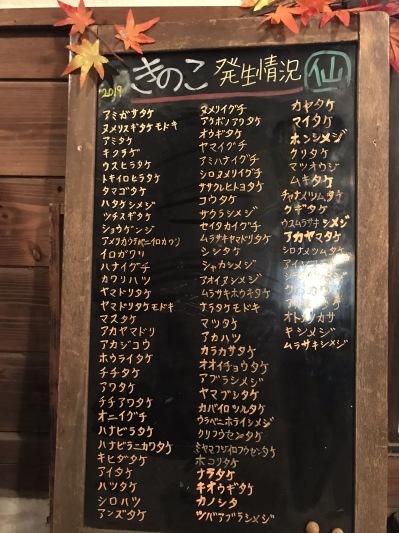 2019 きのこ 発生情況 仙
アミガサタケ
ヌメリスギタケモドキ
アミタケ
キクラゲ
ウスヒラタケ
トキイロヒラタケ
タマゴタケ
ハタケシメジ
ツチスギタケ
ショウゲンジ
アメリカウラベニイロガワリ
イロガワリ
ハナイグチ
カワリハツ
ヤマドリタケ
ヤマドリタケモドキ
マスタケ
アカヤマドリ
アカジコウ
ホウライタケ
チチタケ
アワタケ
チチアワタケ
オニイグチ
ハナビラタケ
ハナビラニカワタケ
キヒダタケ
アイタケ
ハツタケ
シロハツ
アンズタケ
ヌメリイグチ
アケボノアワタケ
オウギタケ
ヤマイグチ
アミハナイグチ
シロヌメリイグチ
ササクレヒトヨタケ
コウタケ
サクラシメジ
セイタカイグチ
ムラサキヤマドリタケ
シシタケ
シャカシメジ
アオイヌシメジ
ムラサキホウキタケ
ナラタケモドキ
マツタケ
アカハツ
カラカサタケ
オオイチョウタケ
アブラシメジ
ヤマブシタケ
カバイロツルタケ
ウラベニホテイシメジ
クリフウセンタケ
ホコリタケ
ナラタケ
キオウギタケ
カノシタ
ツバアブラシメジ
カヤタケ
マイタケ
ホンシメジ
クリタケ
マツオウジ
ムキタケ
チャナメツムタケ
クギタケ
ウスムラサキシメジ
アカヤマタケ
シロナメツムタケ
キシメジ
ムラサキシメジ